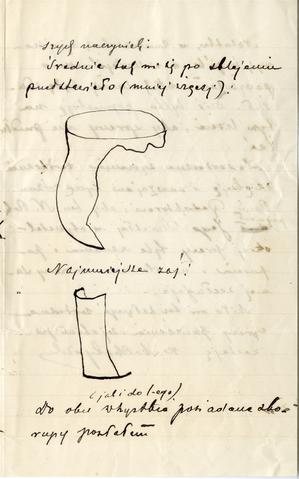 szych naczyniek:
Średnie tak mi się po sklejeniu
przedstawiało (mniej więcej):
Najmniejsze zaś:
(jak i do 1-ego)
Do obu wszystkie posiadane sko-
rupy posłałem